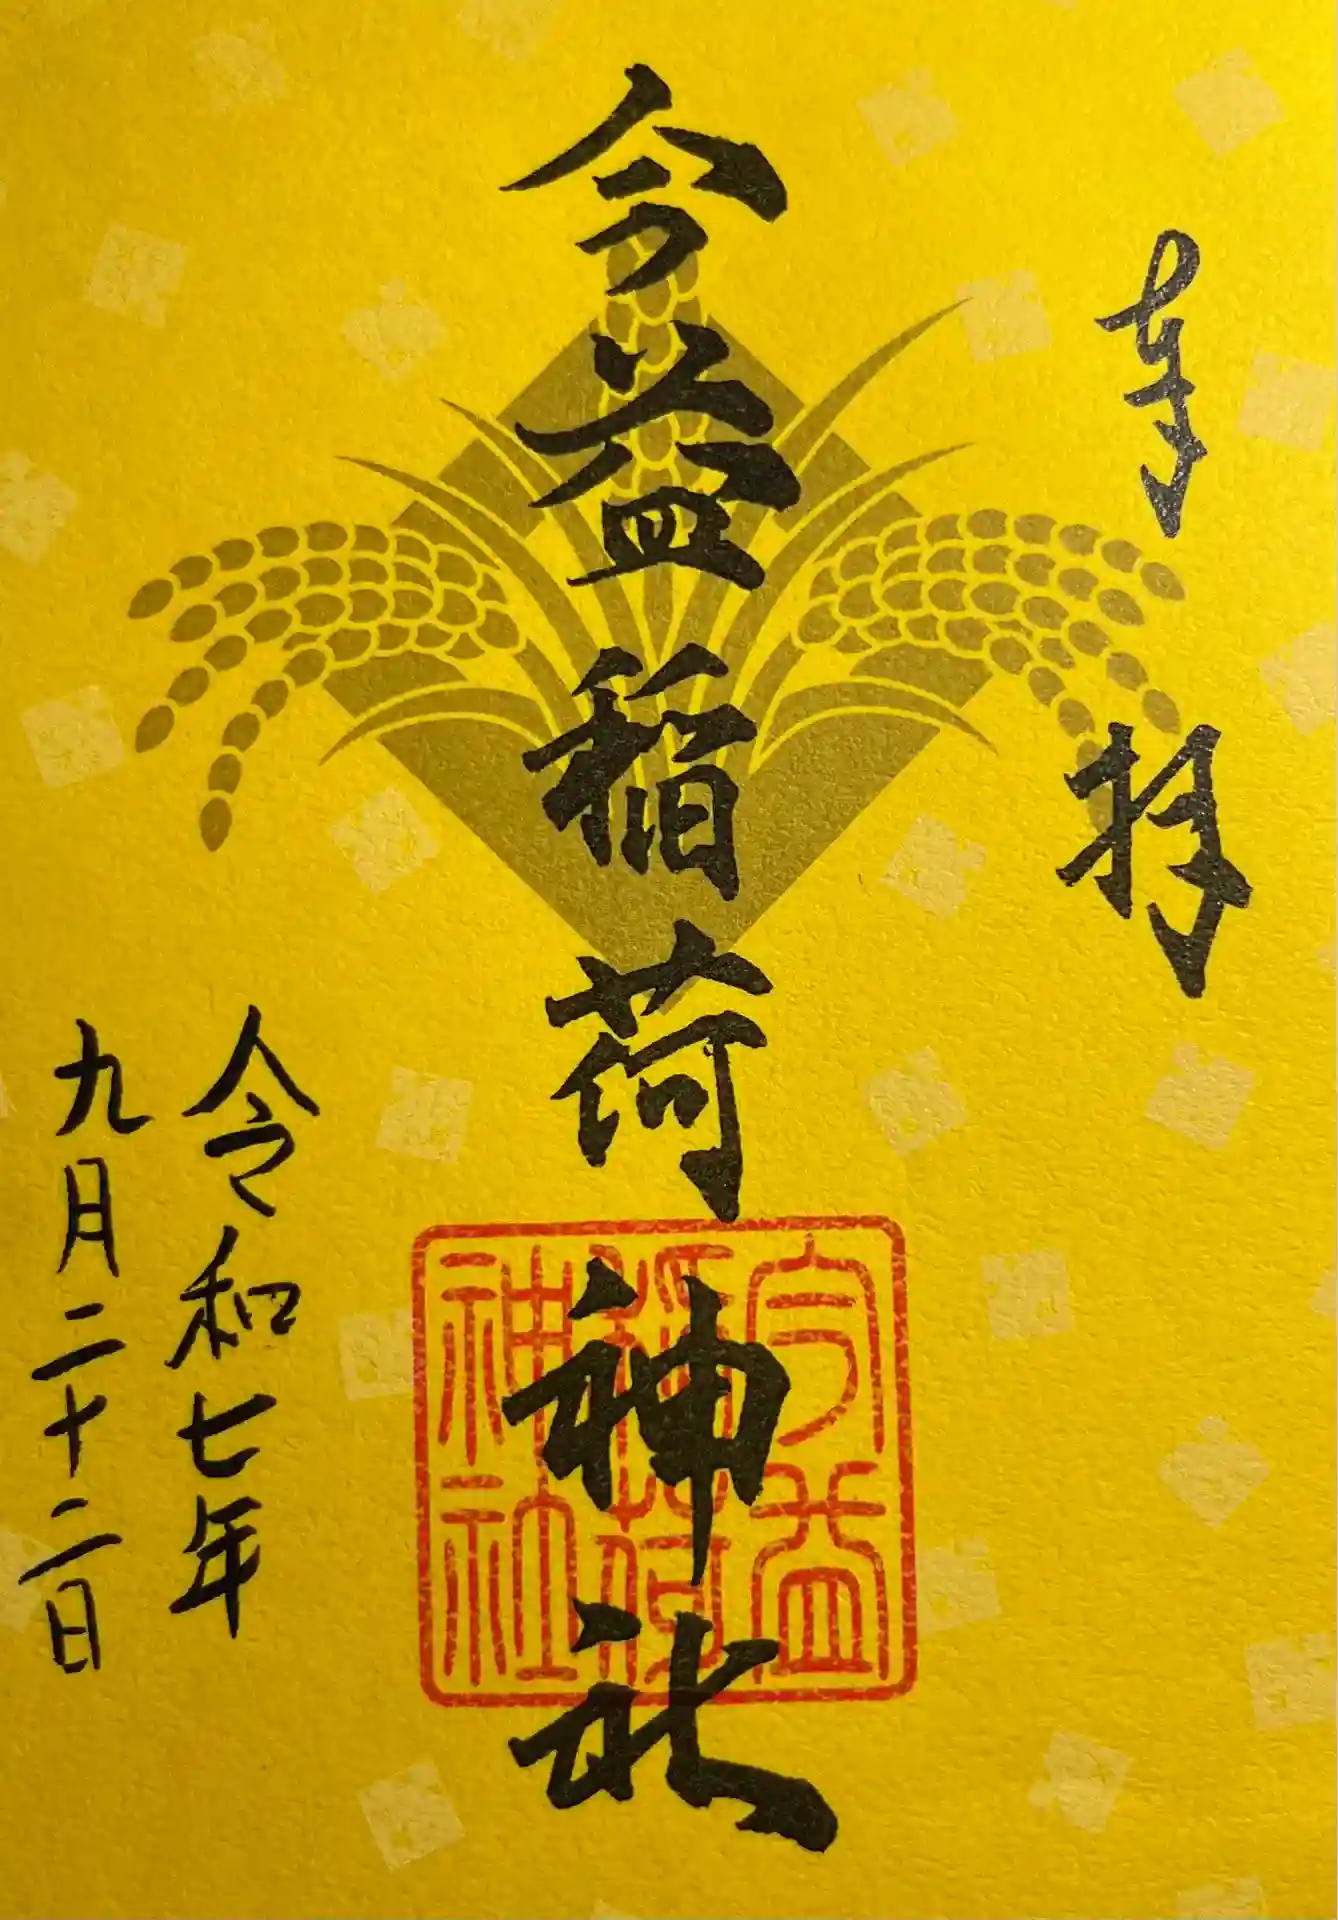 奉拝
今益稲荷神社
今益
稲荷
神社
令和七年
九月二十二日